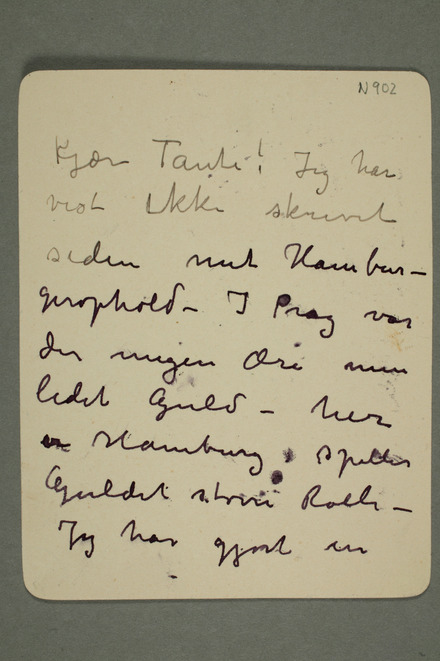 N 902
Kjær Tante! Jeg har
vist Ikke skrevet
siden mit Hambur-
gerophold - I Prag var
der megen Ære men
lidet Guld - her
Hamburg, spiller
Guldet større Rolle -
Jeg har gjort en